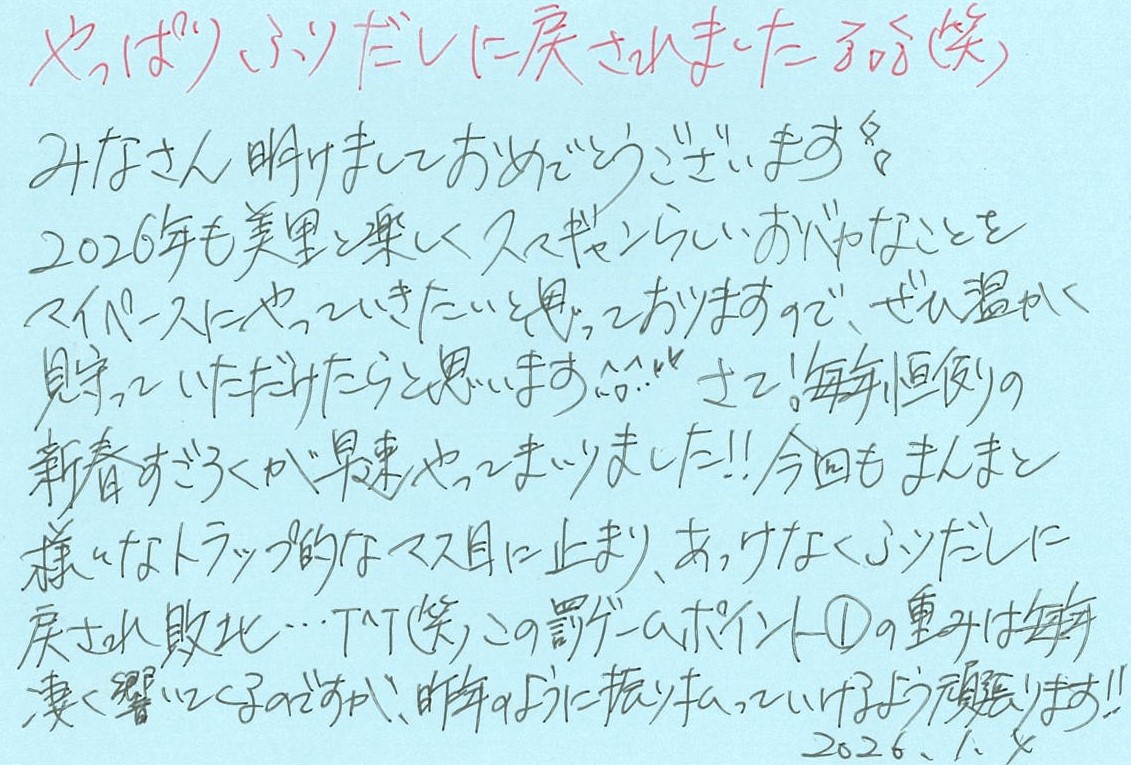 やっぱりふりだしに戻されました(笑)
みなさん明けましておめでとうございます!
2026年も美里と楽しくスマギャンらしいおバカなことを
マイペースにやっていきたいと思っておりますので、ぜひ温かく
見守っていただけたらと思います さて!毎年恒例の
新春すごろくが早速やってまいりました!!今回もまんまと
様々なトラップ的なマス目に止まり、あっけなくふりだしに
戻され敗北…T^T(笑)この罰ゲームポイント①の重みは毎年
凄く響いてくるのですが、昨年のように振り払っていけるよう頑張ります!!
2026.1.4